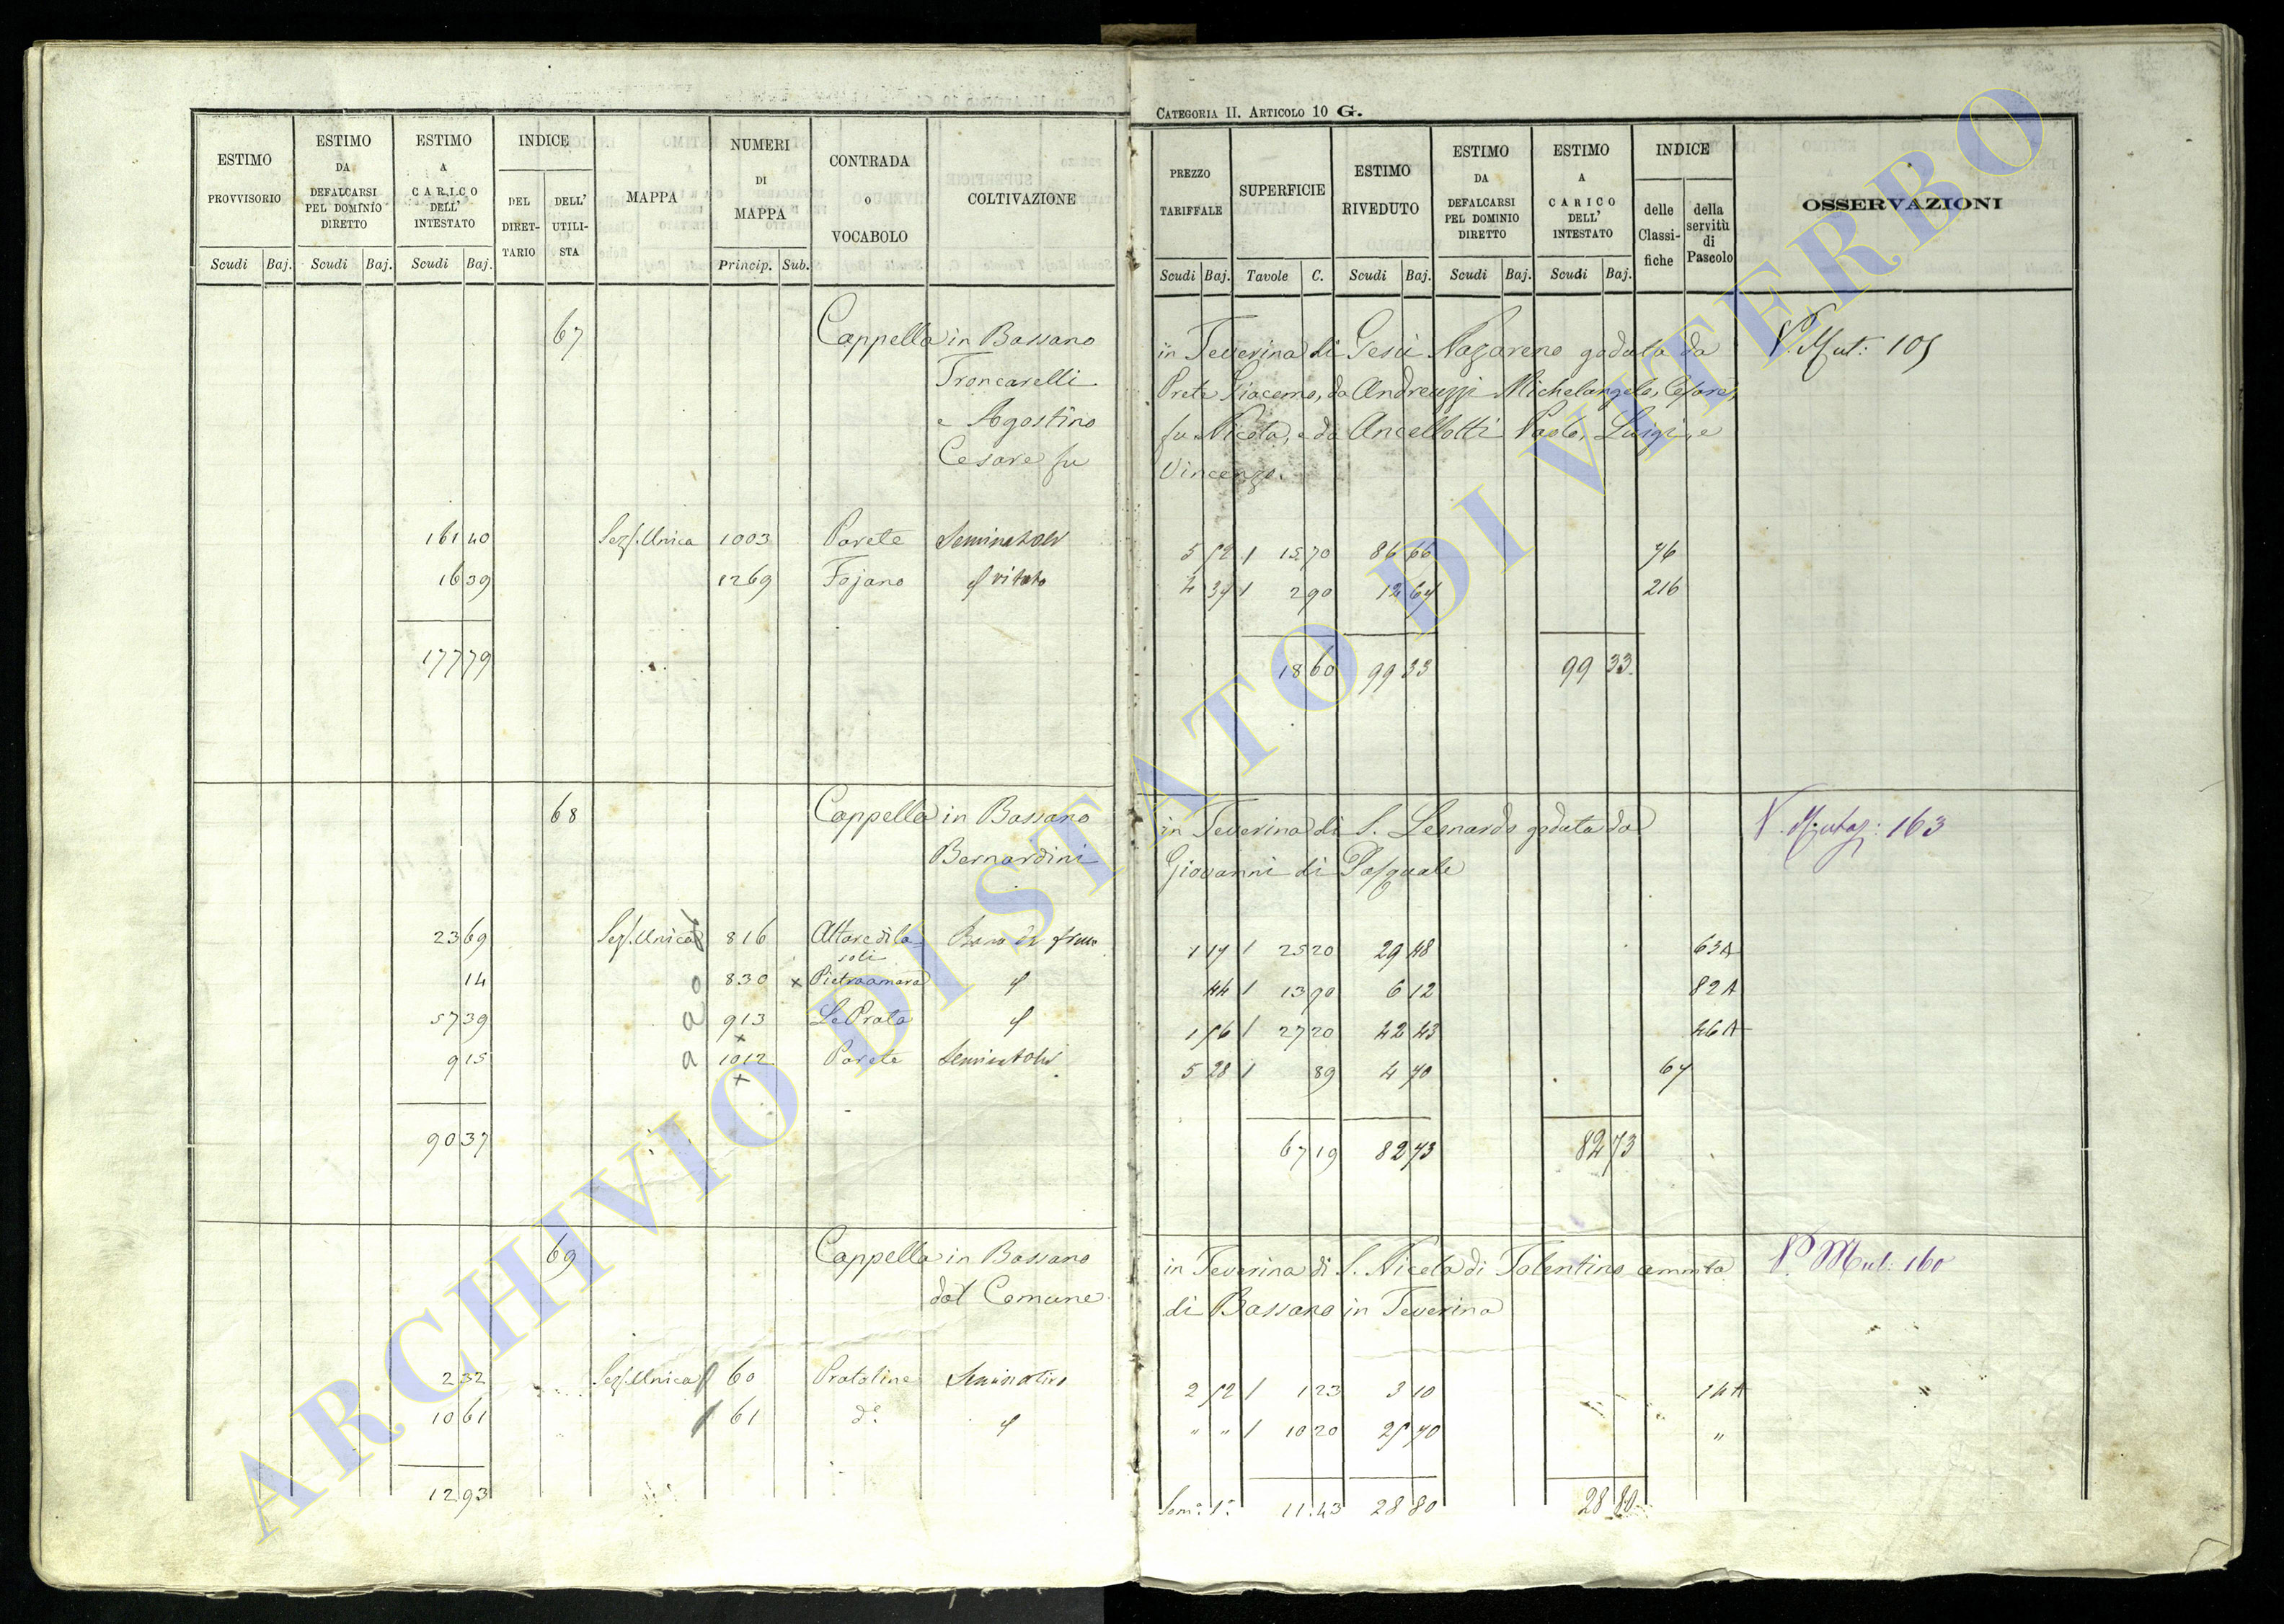 CATEGORIA II. ARTICOLO 10 G.
ESTIMO PROVVISORIO
ESTIMO DA DEFALCARSI PEL DOMINIO DIRETTO
ESTIMO A CARICO DELL' INTESTATO
INDICE
DEL DIRET- TARIO
DELL' UTILI- STA
MAPPA
NUMERI DI MAPPA
CONTRADA O VOCABOLO
COLTIVAZIONE
Scudi Baj. Scudi Baj. Scudi Baj. Princip. Sub.
PREZZO TARIFFALE
SUPERFICIE
ESTIMO RIVEDUTO
ESTIMO DA DEFALCARSI PEL DOMINIO DIRETTO
ESTIMO A CARICO DELL' INTESTATO
INDICE
delle Classi- fiche
della servitù di Pascolo
OSSERVAZIONI
Scudi Baj. Tavole C. Scudi Baj. Scudi Baj. Scudi Baj.
67 Cappella in Bassano in Teverina di Gesù Nazareno goduta da V. Mut: 105
Troncarelli Prete Giacomo, da Andreuzzi Michelangelo, Cesare,
e Agostino fu Nicola, e da Ancellotti Paolo, Luigi, e
Cesare fu Vincenzo.
161 40 Sez. Unica 1003 Parete Seminativo 5 52 1 15 70 86 66 76
16 39 1269 Fojano vitato 4 34 1 2 90 12 67 216
177 79 18 60 99 33 99 33
68 Cappella in Bassano in Teverina di S. Leonardo goduta da V. Mutaz: 163
Bernardini Giovanni di Pasquale
23 69 Sez. Unica 816 Altare di la soli 1 17 1 25 20 29 48 63A
14 a 830 x Pietraamara 44 1 13 90 6 12 82A
57 39 a 913 Le Prata 1 56 1 27 20 42 43 46A
x
9 15 a 1012 Parete Seminativo 5 28 1 89 4 70 67
x
90 37 67 19 82 73 82 73
69 Cappella in Bassano in Teverina di S. Nicola di Tolentino ammta V. Mut: 160
dal Comune di Bassano in Teverina
2 32 Sez. Unica 60 Pratoline Seminativo 2 52 1 1 23 3 10 14A
10 61 61 d.° " " 1 10 20 25 70 "
12 93 Som.a 1.a 11.43 28 80 28 80
ARCHIVIO DI STATO DI VITERBO